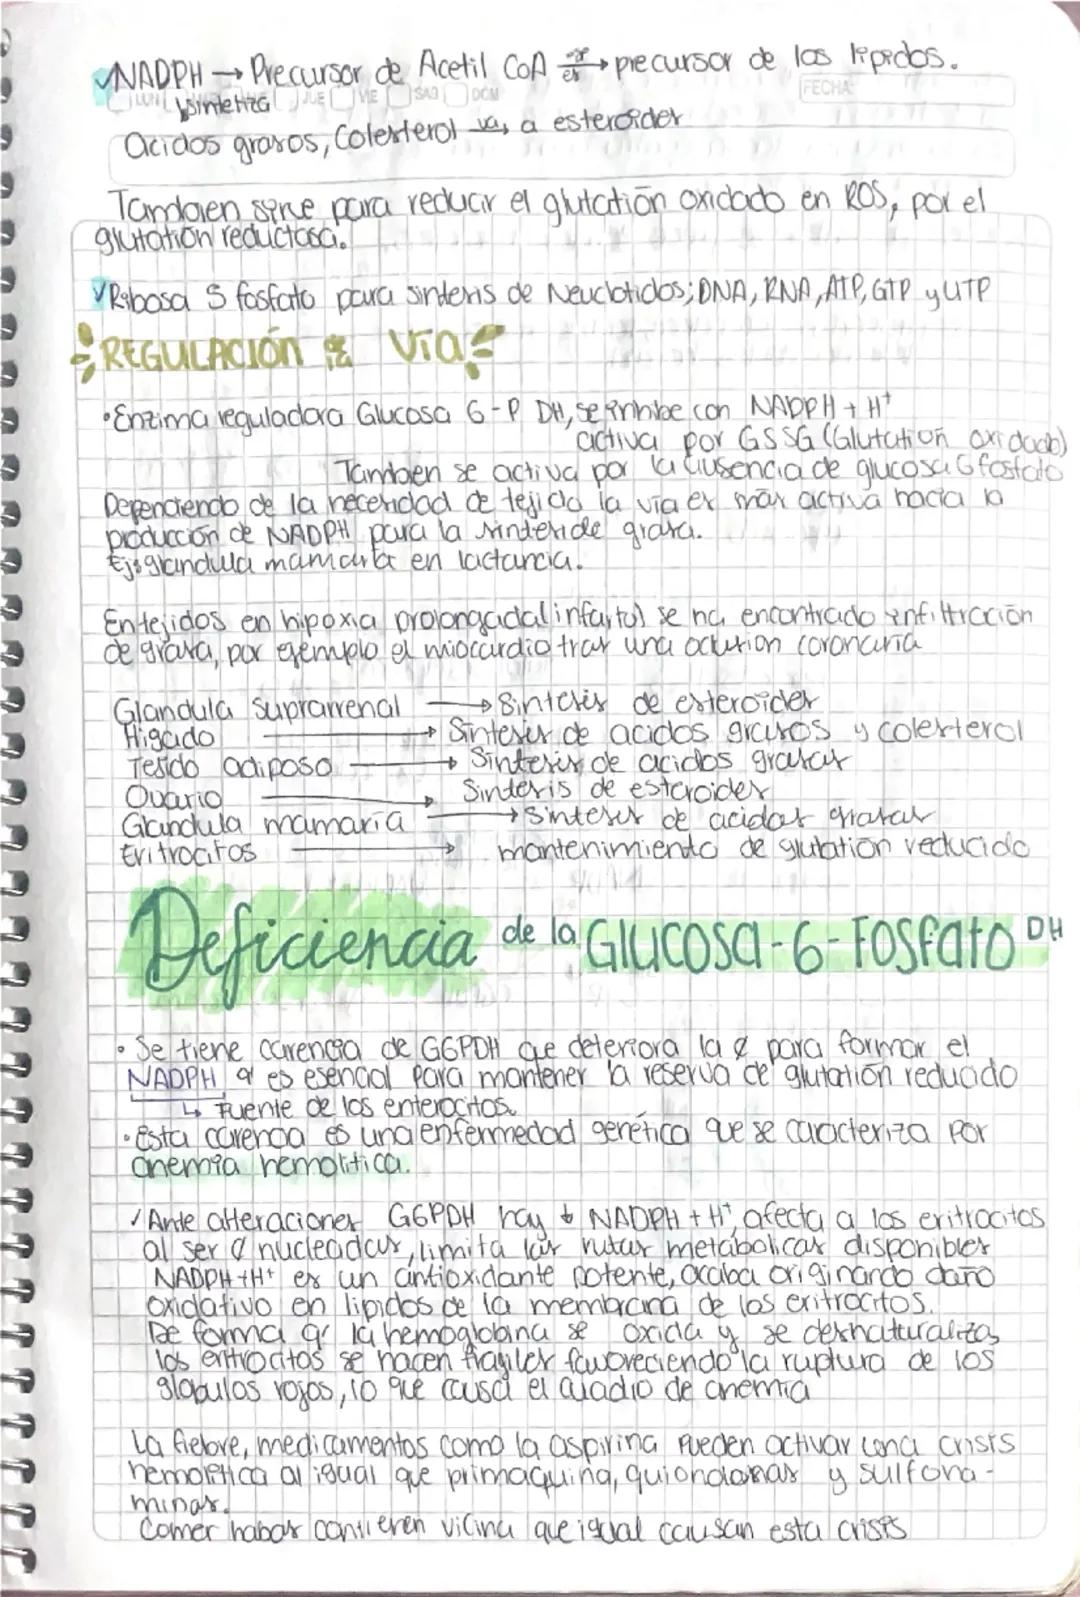 ✓NADPH → Precursor de Acetil CoA es→ precursor de los lipidos.
FECHA:
LUN JUE VIE SAB DOM
↳sintetiza
Acidos grasos, Colesterol va, a esteroides
Tambien sirve para reducir el glutatión oxidado en ROS, por el
glutation reductasa.
✓Ribosa 5 fosfato para sintesis de Neuclotidos; DNA, RNA, ATP, GTP y UTP
REGULACIÓN Vía
• Enzima reguladora Glucosa 6-P DH, se inhibe con NADPH + H+
activa por GSSG (Glutatión oxidado)
Tambien se activa por la ausencia de glucosa 6 fosfato
Dependiendo de la necesidad de tejido la vía es más activa hacia la
producción de NADPH para la sintesis de grasa.
Ej: glandula mamaria en lactancia.
En tejidos en hipoxia prolongada (infarto) se ha encontrado infiltración
de grasa, por ejemplo el miocardio tras una oclusion coronaria
Glandula suprarrenal → Sintesis de esteroides
Higado → Sintesis de acidos grasos y colesterol
Tejido adiposo → Sintesis de acidos grasas
Ovario → Sintesis de esteroides
Glandula mamaria → Sintesis de acidos grasas
Eritrocitos → mantenimiento de glutatión reducido
Deficiencia de la Glucosa-6-Fosfato DH
• Se tiene carencia de G6PDH que deteriora la para formar el
NADPH q' es esencial para mantener la reserva de glutatión reducido
↳ Fuente de los enterocitos.
• Esta carencia es una enfermedad genética que se caracteriza por
anemia hemolitica.
✓Ante alteraciones G6PDH hay ↓ NADPH + H+, afecta a los eritrocitos
al ser Ø nucleadas, limita las rutas metabolicas disponibles
NADPH+H+ es un antioxidante potente, acaba originando daño
oxidativo en lipidos de la membrana de los eritrocitos.
De forma q' la hemoglobina se oxida y se desnaturaliza,
los eritrocitos se hacen fragiles favoreciendo la ruptura de los
globulos rojos, lo que causa el cuadro de anemia
La fiebre, medicamentos como la aspirina pueden activar una crisis
hemolitica al igual que primaquina, quiondonas y sulfona-
minas.
Comer habas contieren vicina que igual causan esta crisis